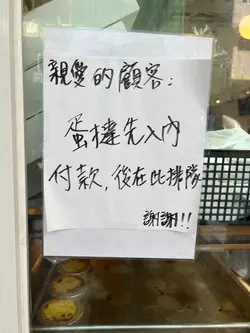 親愛的顧客：
蛋撻先入內
付款，後在此排隊
謝謝!!